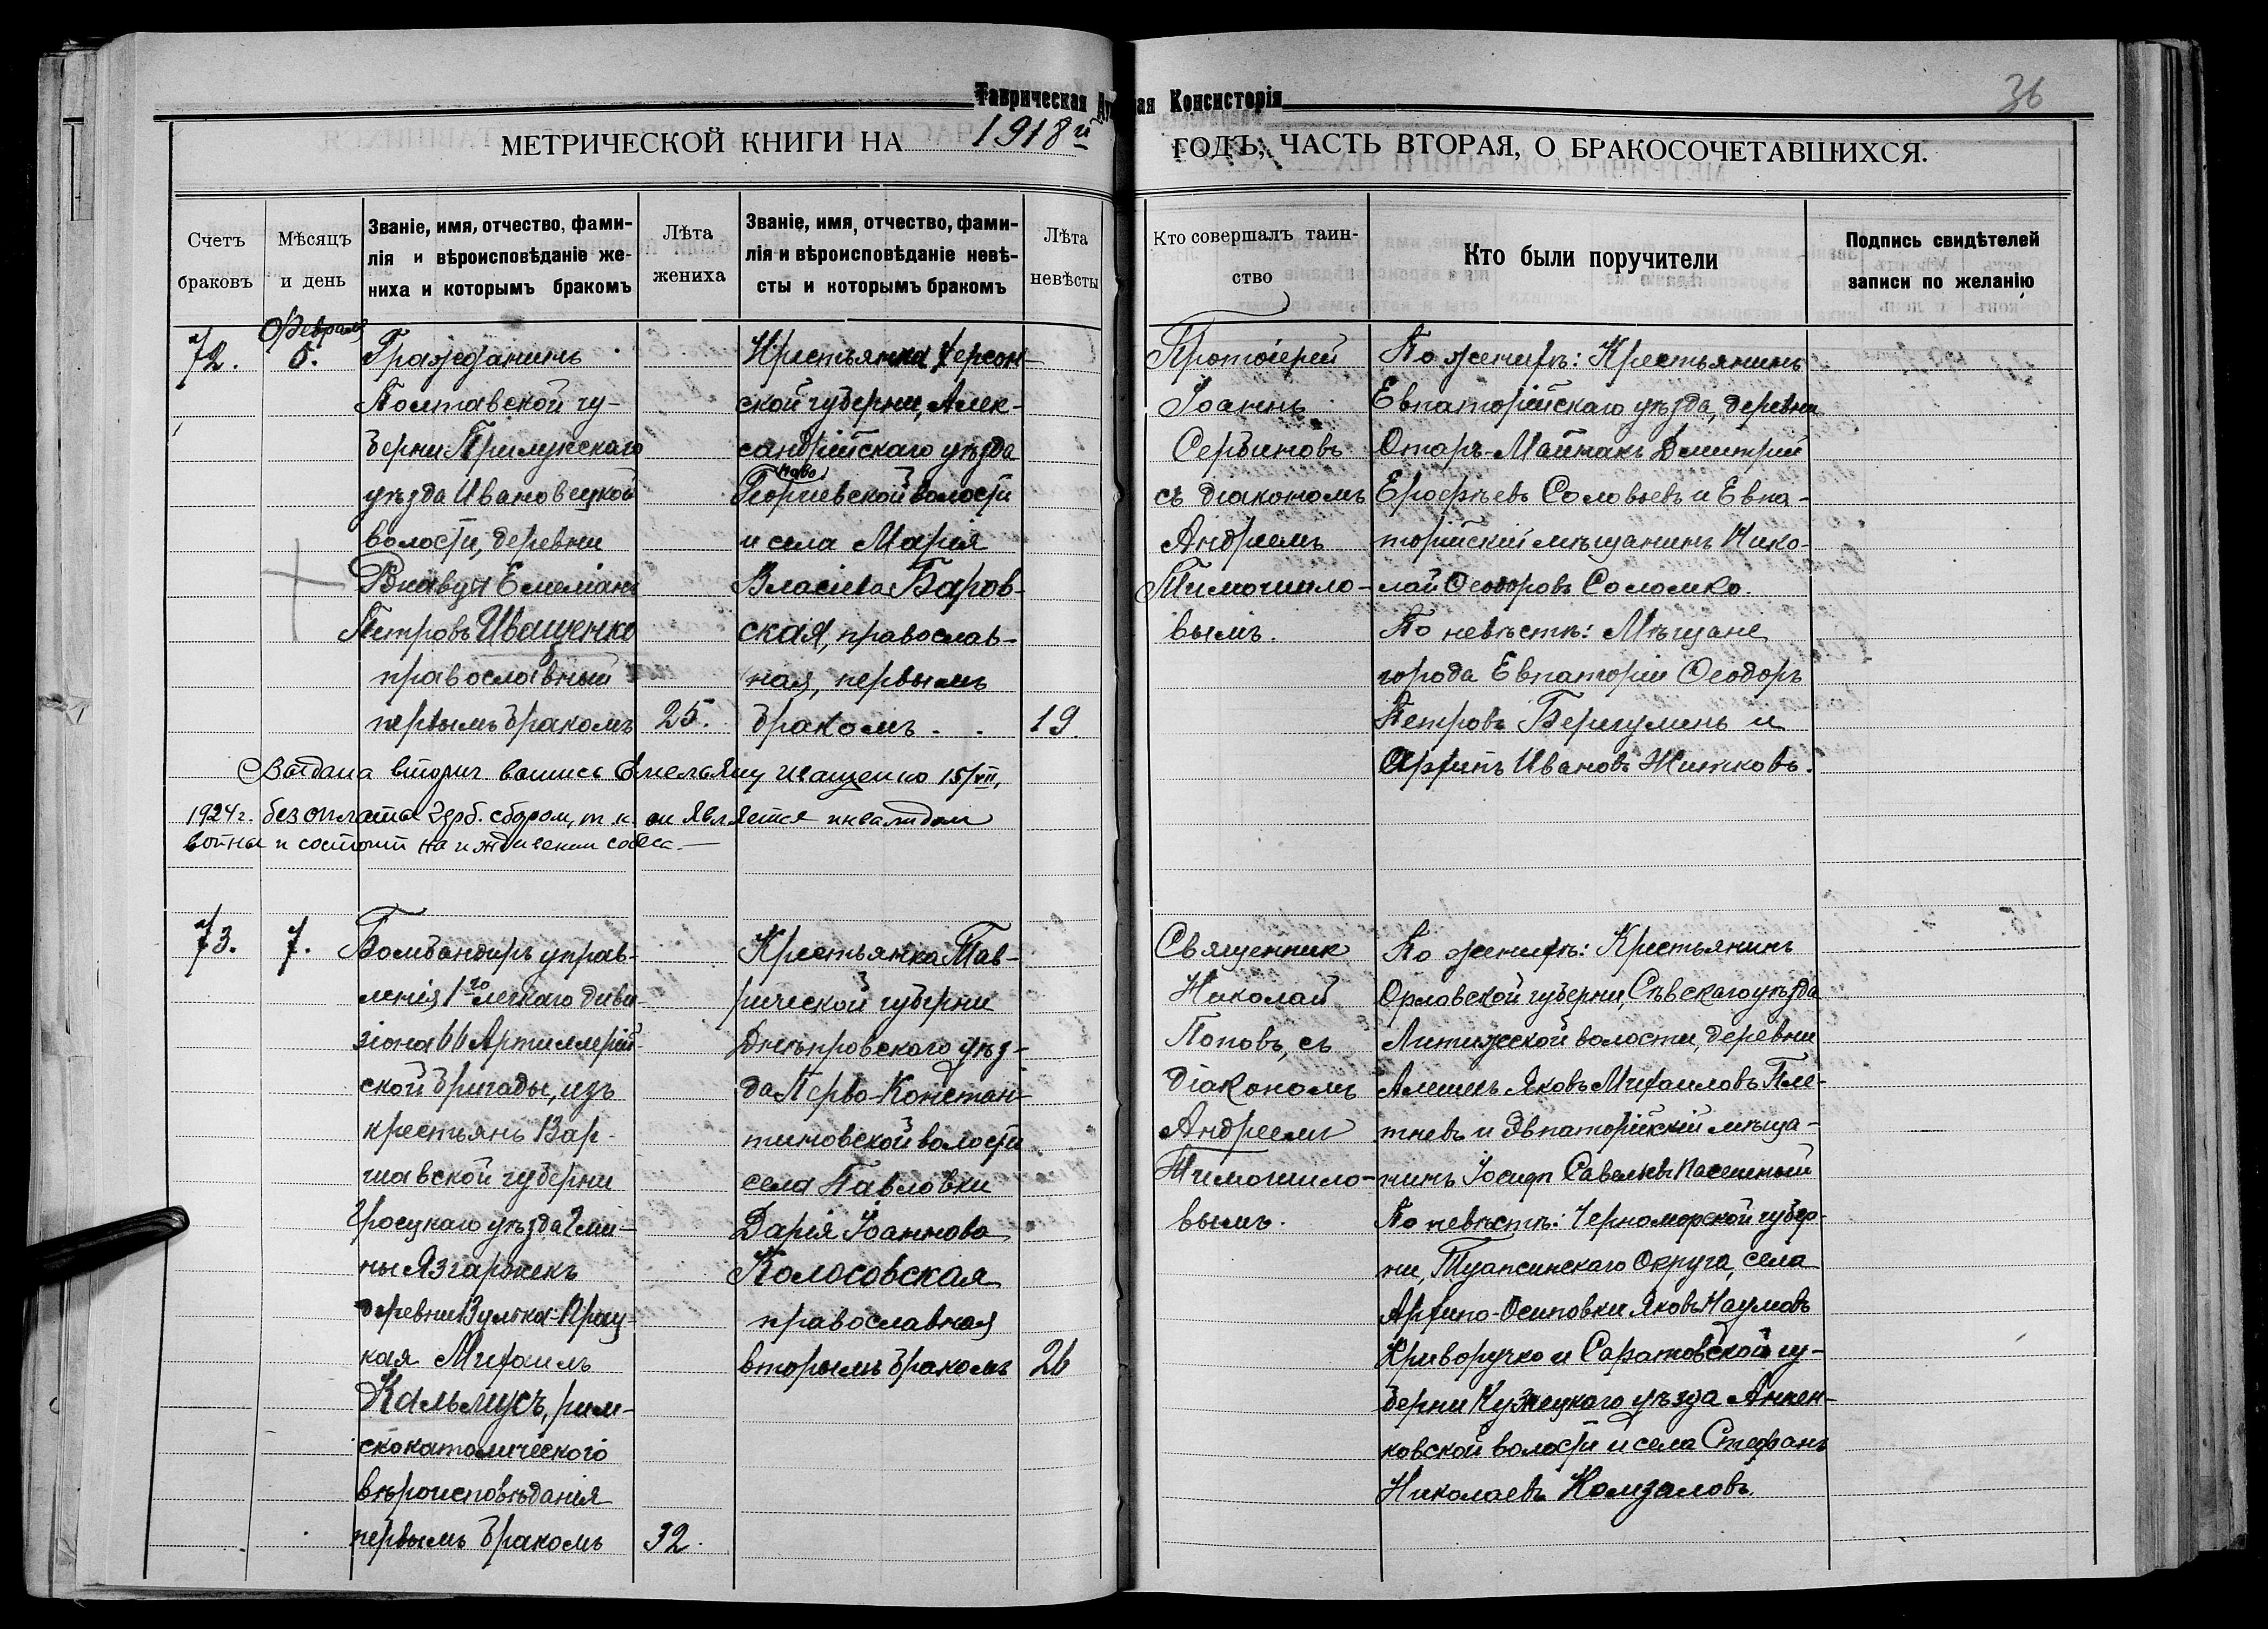 Таврическая Ду
ая Консисторія
36
МЕТРИЧЕСКОЙ КНИГИ НА 1918й
ГОДЪ, ЧАСТЬ ВТОРАЯ, О БРАКОСОЧЕТАВШИХСЯ.
Счетъ браковъ
Мѣсяцъ и день
Званіе, имя, отчество, фами-
лія и вѣроисповѣданіе же-
ниха и которымъ бракомъ
Лѣта жениха
Званіе, имя, отчество, фами-
лія и вѣроисповѣданіе невѣ-
сты и которымъ бракомъ
Лѣта невѣсты
Кто совершалъ таин-
ство
Кто были поручители
Подпись свидѣтелей
записи по желанію
72.
Февраля
5.
Гражданинъ
Полтавской гу-
берни Прилукскаго
уѣзда Ивановецкой
волости, деревни
Ржавца Емеліанъ
Петровъ Иващенко
православный
первымъ бракомъ
25.
Крестьянка Херсон-
ской губерни, Алек-
сандрійскаго уѣзда
Ново
Георгіевской волости
и села Марія
Власіева Баров-
ская, православ-
ная, первымъ
бракомъ.
19.
Протоіерей
Іоаннъ
Сербиновъ
съ діакономъ
Андреемъ
Тимошило-
вымъ.
По женихѣ: Крестьянинъ
Евпаторійскаго уѣзда, деревни
Отаръ-Майнакъ Димитрий
Ерофѣевъ Соловьевъ и Евпа-
торійскій мѣщанинъ Нико-
лай Ѳеодоровъ Соломко.
По невѣстѣ: Мѣщане
города Евпаторіи Ѳеодоръ
Петровъ Беригулинъ и
Архипъ Ивановъ Житковъ.
Выдана вторич выпись Емельяну Иващенко 15/VII,
1924 г. без оплаты герб. сбором, т. к. он является инвалидом
войны и состоит на иждивении собеса.—
73.
7.
Бомбандиръ управ-
ленія 1го легкаго диви-
зіона 66 Артиллерій-
ской бригады, изъ
крестьянъ Вар-
шавской губерни
Гроецкаго уѣзда Гми-
ны Язгаржекъ
деревни Вулька-Прац-
кая Михаилъ
Кальмусъ, рим-
скокатолическаго
вѣроисповѣданія
первымъ бракомъ
32.
Крестьянка Тав-
рической губерни
Днѣпровскаго уѣз-
да Перво-Констан-
тиновской волости
села Павловки
Дарія Іоаннова
Колосовская
православная
вторымъ бракомъ
26
Священник
Николай
Поповъ, съ
діакономъ
Андреемъ
Тимошило-
вымъ.
По женихѣ: Крестьянинъ
Орловской губерни, Сѣвскаго уѣзда
Литижской волости, деревни
Алешекъ Яковъ Михаиловъ Пле-
тневъ и Евпаторійскій мѣща-
нинъ Іосифъ Савельевъ Пасешный
По невѣстѣ: Черноморской губер-
ни, Туапсинскаго Округа, села
Архипо-Осиповки Яковъ Наумовъ
Криворучко и Саратовской гу-
берни Кузнецкаго уѣзда Аннен-
ковской волости и села Стефанъ
Николаевъ Комзаловъ.